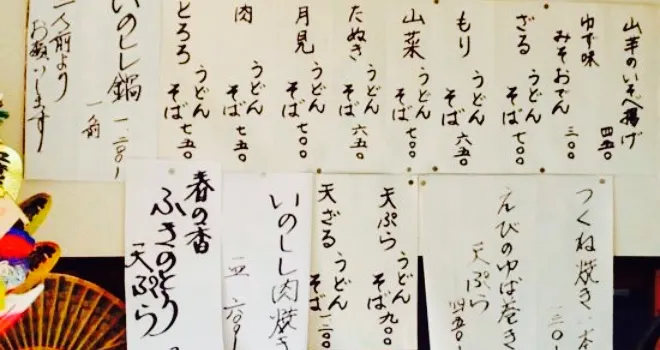 山芋のいそべ揚げ 四五〇
ゆず味
みそおでん 三〇〇
ざる うどん そば 七〇〇
もり うどん そば 六五〇
山菜 うどん そば 七〇〇
たぬき うどん そば 六五〇
月見 うどん そば 七〇〇
肉 うどん そば 七五〇
とろろ うどん そば 七五〇
いのしし鍋 一人前
二人前より
お願いします
つくね焼き 一本
えびのゆば巻き
天ぷら 四五〇
天ぷら うどん そば 九〇〇
天ざる うどん そば
いのしし肉焼き
一皿
春の香
ふきのとう
天ぷら